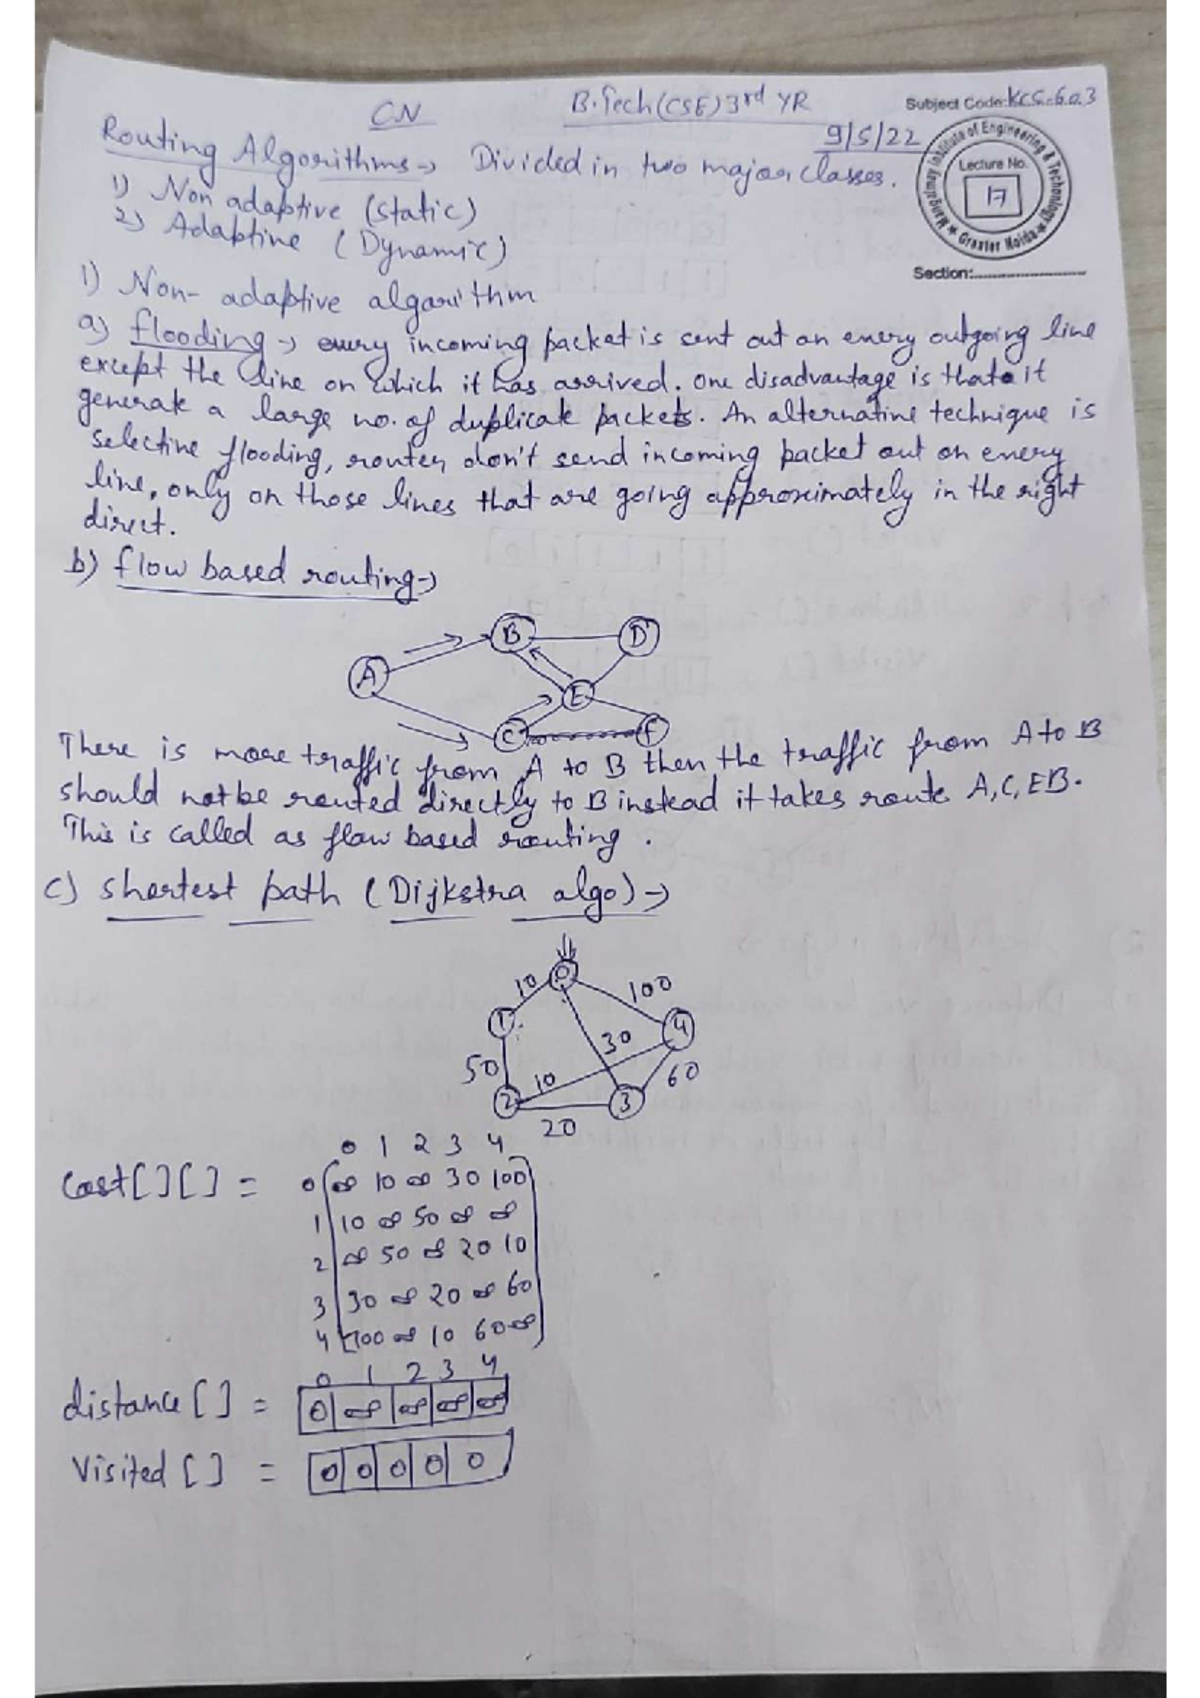 CN
B.Tech(CSE)3rd YR
Subject Code:KCS-603
9/5/22
Mangalmay Institute of Engineering & Technology
Lecture No.
17
Greater Noida
Section:
Routing Algorithms→ Divided in two major classes.
1) Non adaptive (static)
2) Adaptive (Dynamic)
1) Non- adaptive algorithm
a) flooding → every incoming packet is sent out on every outgoing line
except the line on which it has arrived. One disadvantage is that it
generate a large no. of duplicate packets. An alternative technique is
selective flooding, router don't send incoming packet out on every
line, only on those lines that are going approximately in the right
direct.
b) flow based routing→
B D
A
E
C F
There is more traffic from A to B then the traffic from A to B
should not be routed directly to B instead it takes route A,C,EB.
This is called as flow based routing.
c) shortest path (Dijkstra algo)→
0
10 100
1 4
30
50 10 60
2 3
20
0 1 2 3 4
Cost[][] = 0 ∞ 10 ∞ 30 100
1 10 ∞ 50 ∞ ∞
2 ∞ 50 ∞ 20 10
3 30 ∞ 20 ∞ 60
4 100 ∞ 10 60 ∞
0 1 2 3 4
distance[] = 0 ∞ ∞ ∞ ∞
Visited[] = 0 0 0 0 0